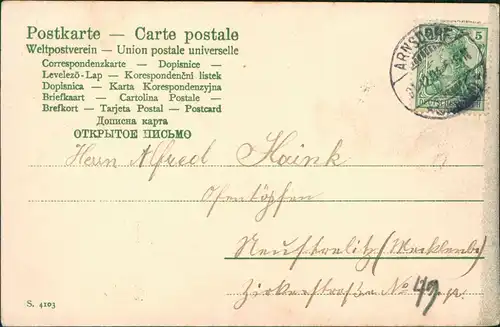 Postkarte — Carte postale
Weltpostverein — Union postale universelle
Correspondenzkarte — Dopisnice —
Levelező-Lap — Korespondenční listek
Dopisnica — Karta Korespondenzyjna
Briefkaart — Cartolina Postale —
Brefkort — Tarjeta Postal — Postcard
Дописна карта
ОТКРЫТОЕ ПИСЬМО
ARNSDORF
5
Herrn Alfred Haink
Neustrelitz (Mecklenb)
No 49
S. 4103